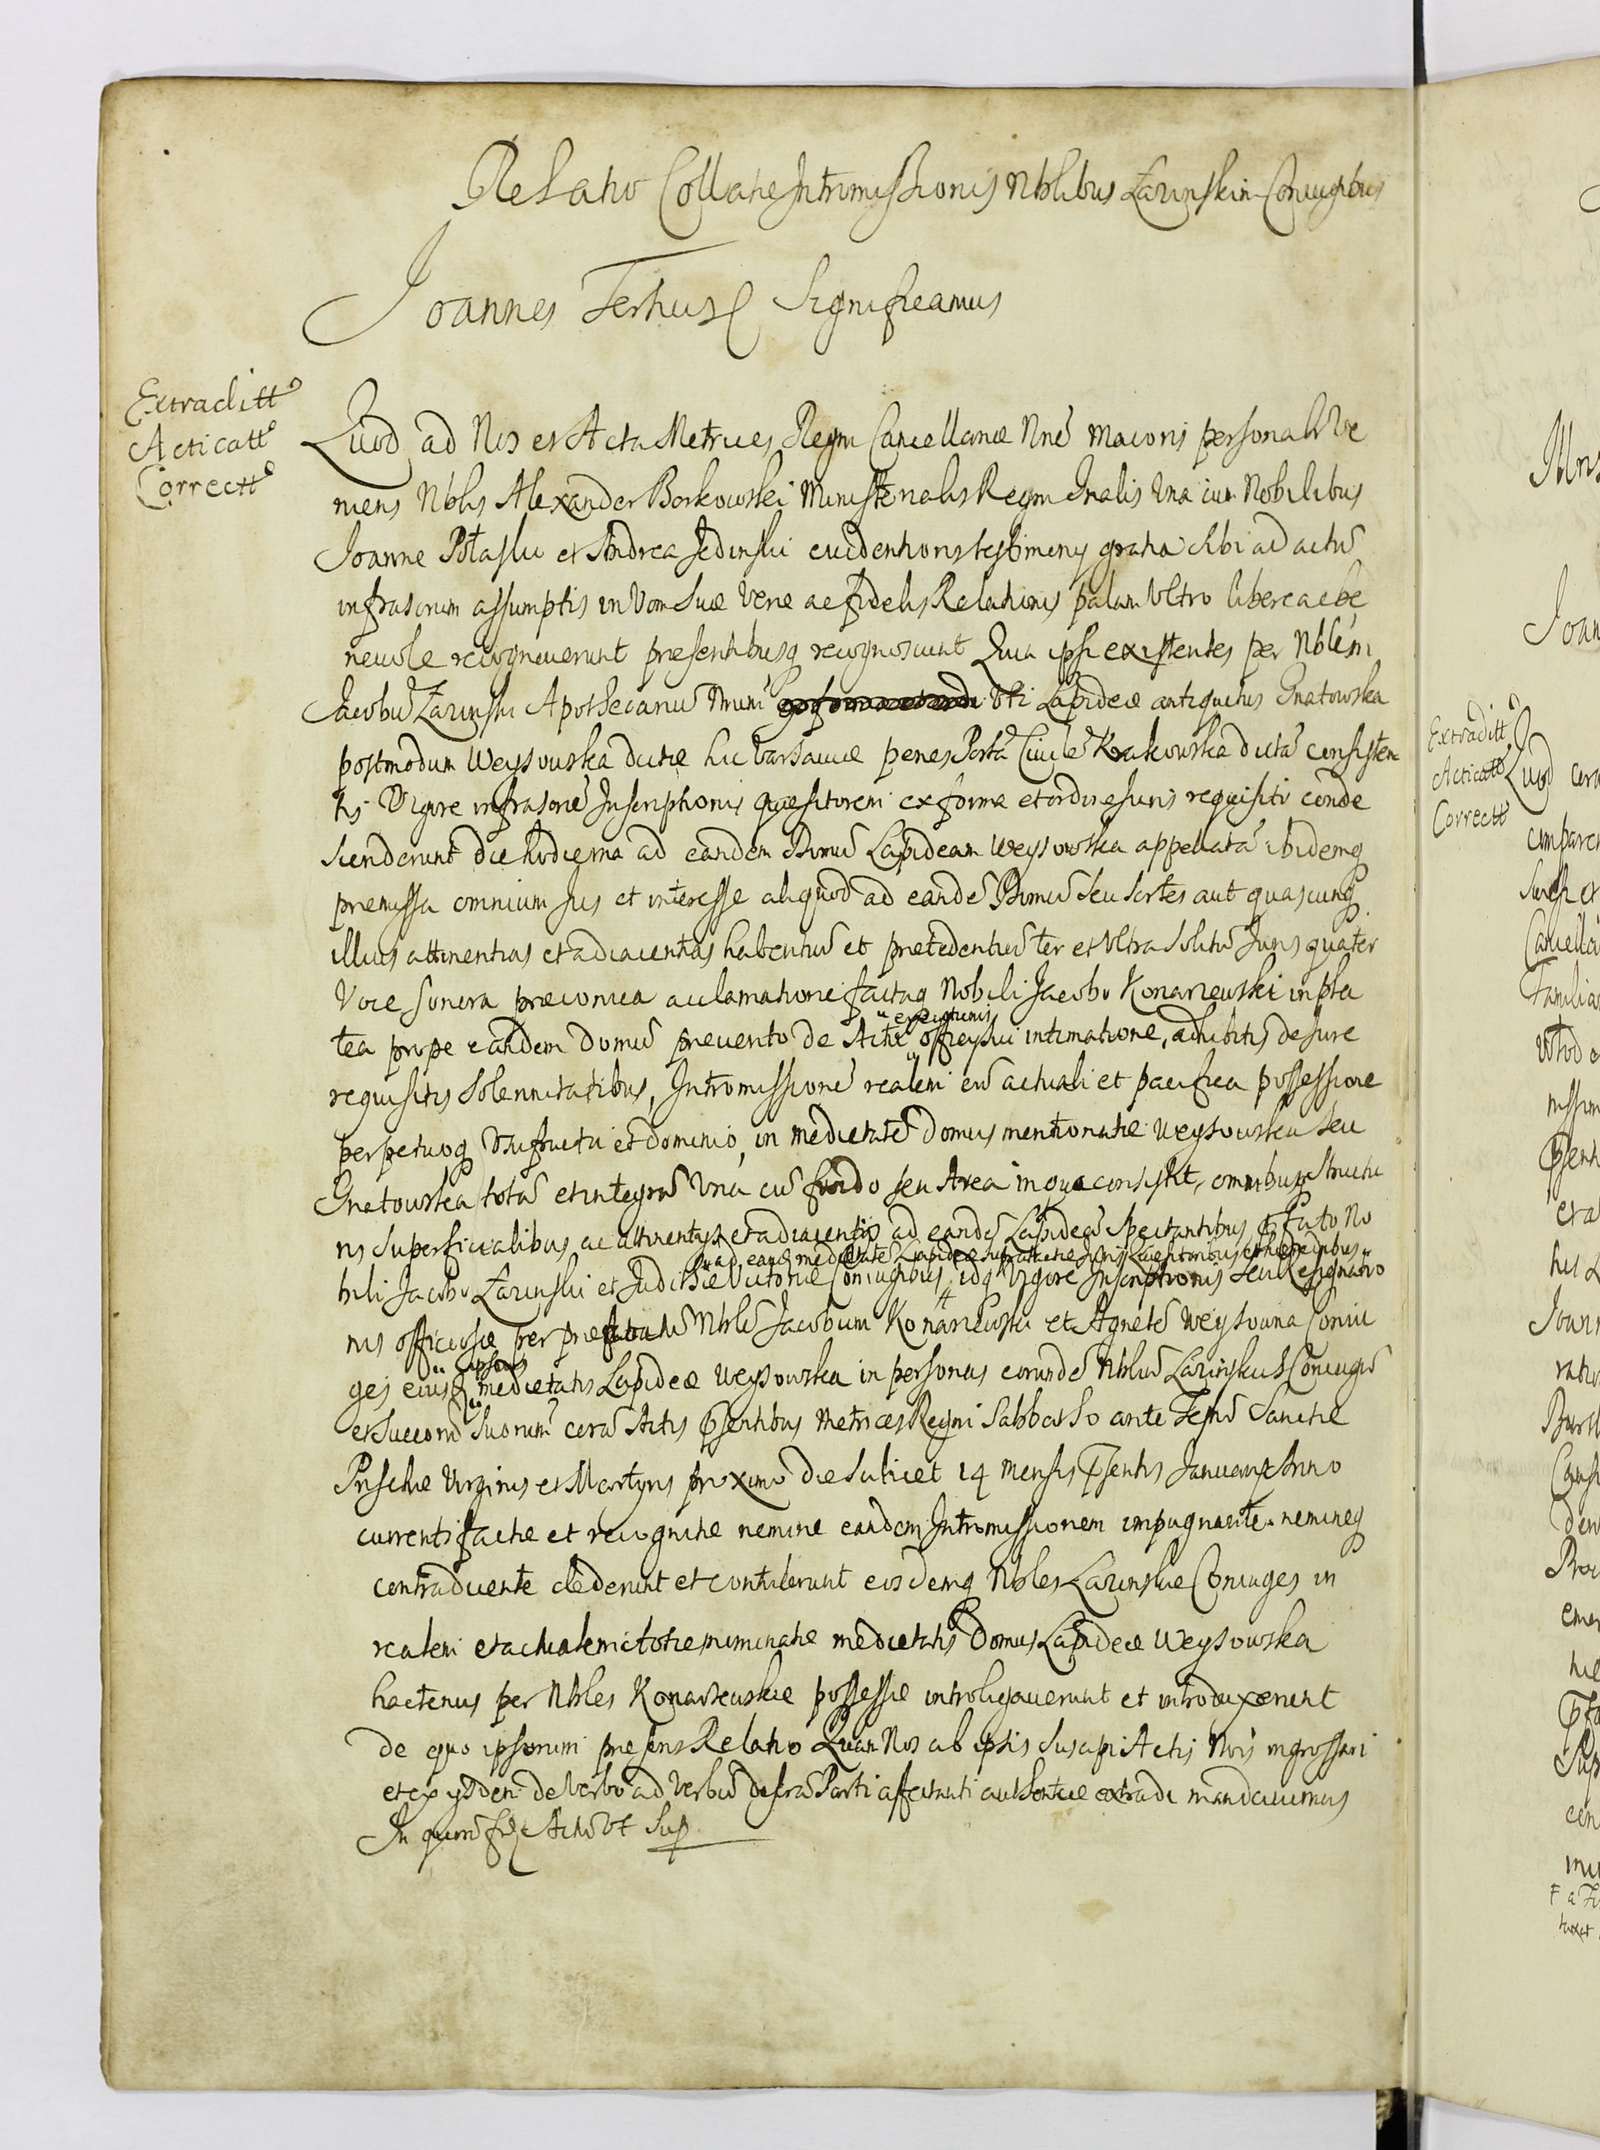 Relatio Collatae Intromissionis Nblibus Lazinskim Coniugibus
Joannes Tertius Significamus
Extraditt
Acticatt
Correctt
Quod ad Nos et Acta Metrices Regni Cancellariae Nrae Maioris personalr Ve
niens Nblis Alexander Borkowski Ministerialis Regni Gnalis Una cum Nobilibus
Joanne Potaski et Andrea Jedinski euidentioris testimony gratia sibi ad actu
infrascrum assumptis in Vim Suae Verae ac fidelis Relationis palam Vltro libere ac be
neuole recogneuerunt praesentibusq recognoscunt Quia ipsi existentes per Nblem
Jacobu Lazinski Apothecariu Nrum Vti Lapideae antiquitus Gnatowska
postmodum Weysowska dictae hic Varsauiae penes Porta Ciuile Krakowska dicta consisten
tis Vigore infrascrae Inscriptionis quaesitorem ex forma et ordine Iuris requisiti conde
scenderunt die hodierna ad eandem Domu Lapideam Weysowska appellata ibidemq
premissa omnium Jus et interesse aliquod ad eande Domu seu Sortes aut quascunq
illius attinentias et adiacentias habentiu et pretedentiu ter et Vltra Solitu Juris quater
Voce sonora praeconica acclamatione factaq Nobili Jacobo Konarzewski in pla
tea prope eandem Domu preuento de Actu officiosi intimatione, adhibitis de Iure
requisitis Solennitatibus, Intromissione realem cu actuali et pacifica possessione
perpetuoq Vsufructu et dominio, in medietate domus mentionatae Weysowska seu
Gnatowska tota et integra Vna cu fundo seu Area in qua consistit, omnibusq Structu
ris Superficialibus ac attinentys et adiacentijs ad eande Lapidea Spectantibus Pfato No
ad eand medietate Lapideae
bili Jacobo Lazinski et Judithae Victoriae Coniugibus, idq Vigore Inscriptionis seu Resignatio
nis officiosae per praefatu Nble Jacobum Konarzewski et Agnete Weysowna Coniu
ges eius medietatis Lapideae Weysowska in personas eorunde Nbliu Lazinskich Coniugu
et Succoru Suorum cora Actis Psentibus Metrices Regni Sabbatho ante Festu Sanctae
Priscae Virginis et Martyris proximo die Scilicet 14 Mensis Psentis Januarij Anno
currenti factae et recognitae nemine eandem Intromissionem impugnante nemineq
contradicente dederunt et contulerunt eosdemq Nbles Lazinskie Coniuges in
realem et actualem medietatis Domus Lapideae Weysowska
hactenus per Nbles Konarzewskie possessae introligauerunt et introduxerunt
de quo ipsorum presens Relatio Quam Nos ab ipsis suscipi Actis Nris ingrossari
et ex ijsdem de Verbo ad Verbu Parti affectanti authentice extradi mandauimus
In quoru fid Actu Vt Sup
Extraditt
Acticatt
Correctt